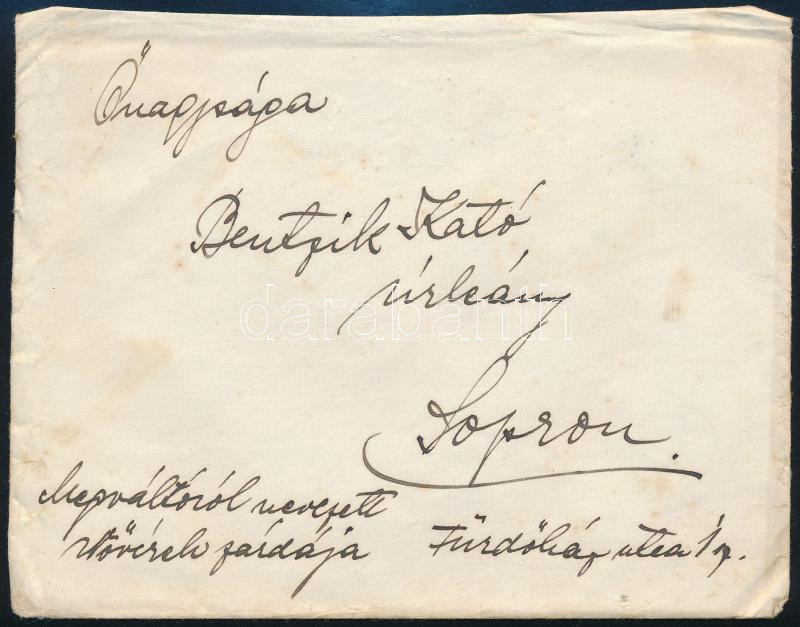 Őnagysága
Bentzik Kató
úrleány
darabanth
Sopron.
Megváltóról nevezett
Nővérek zárdája Fürdőház utca